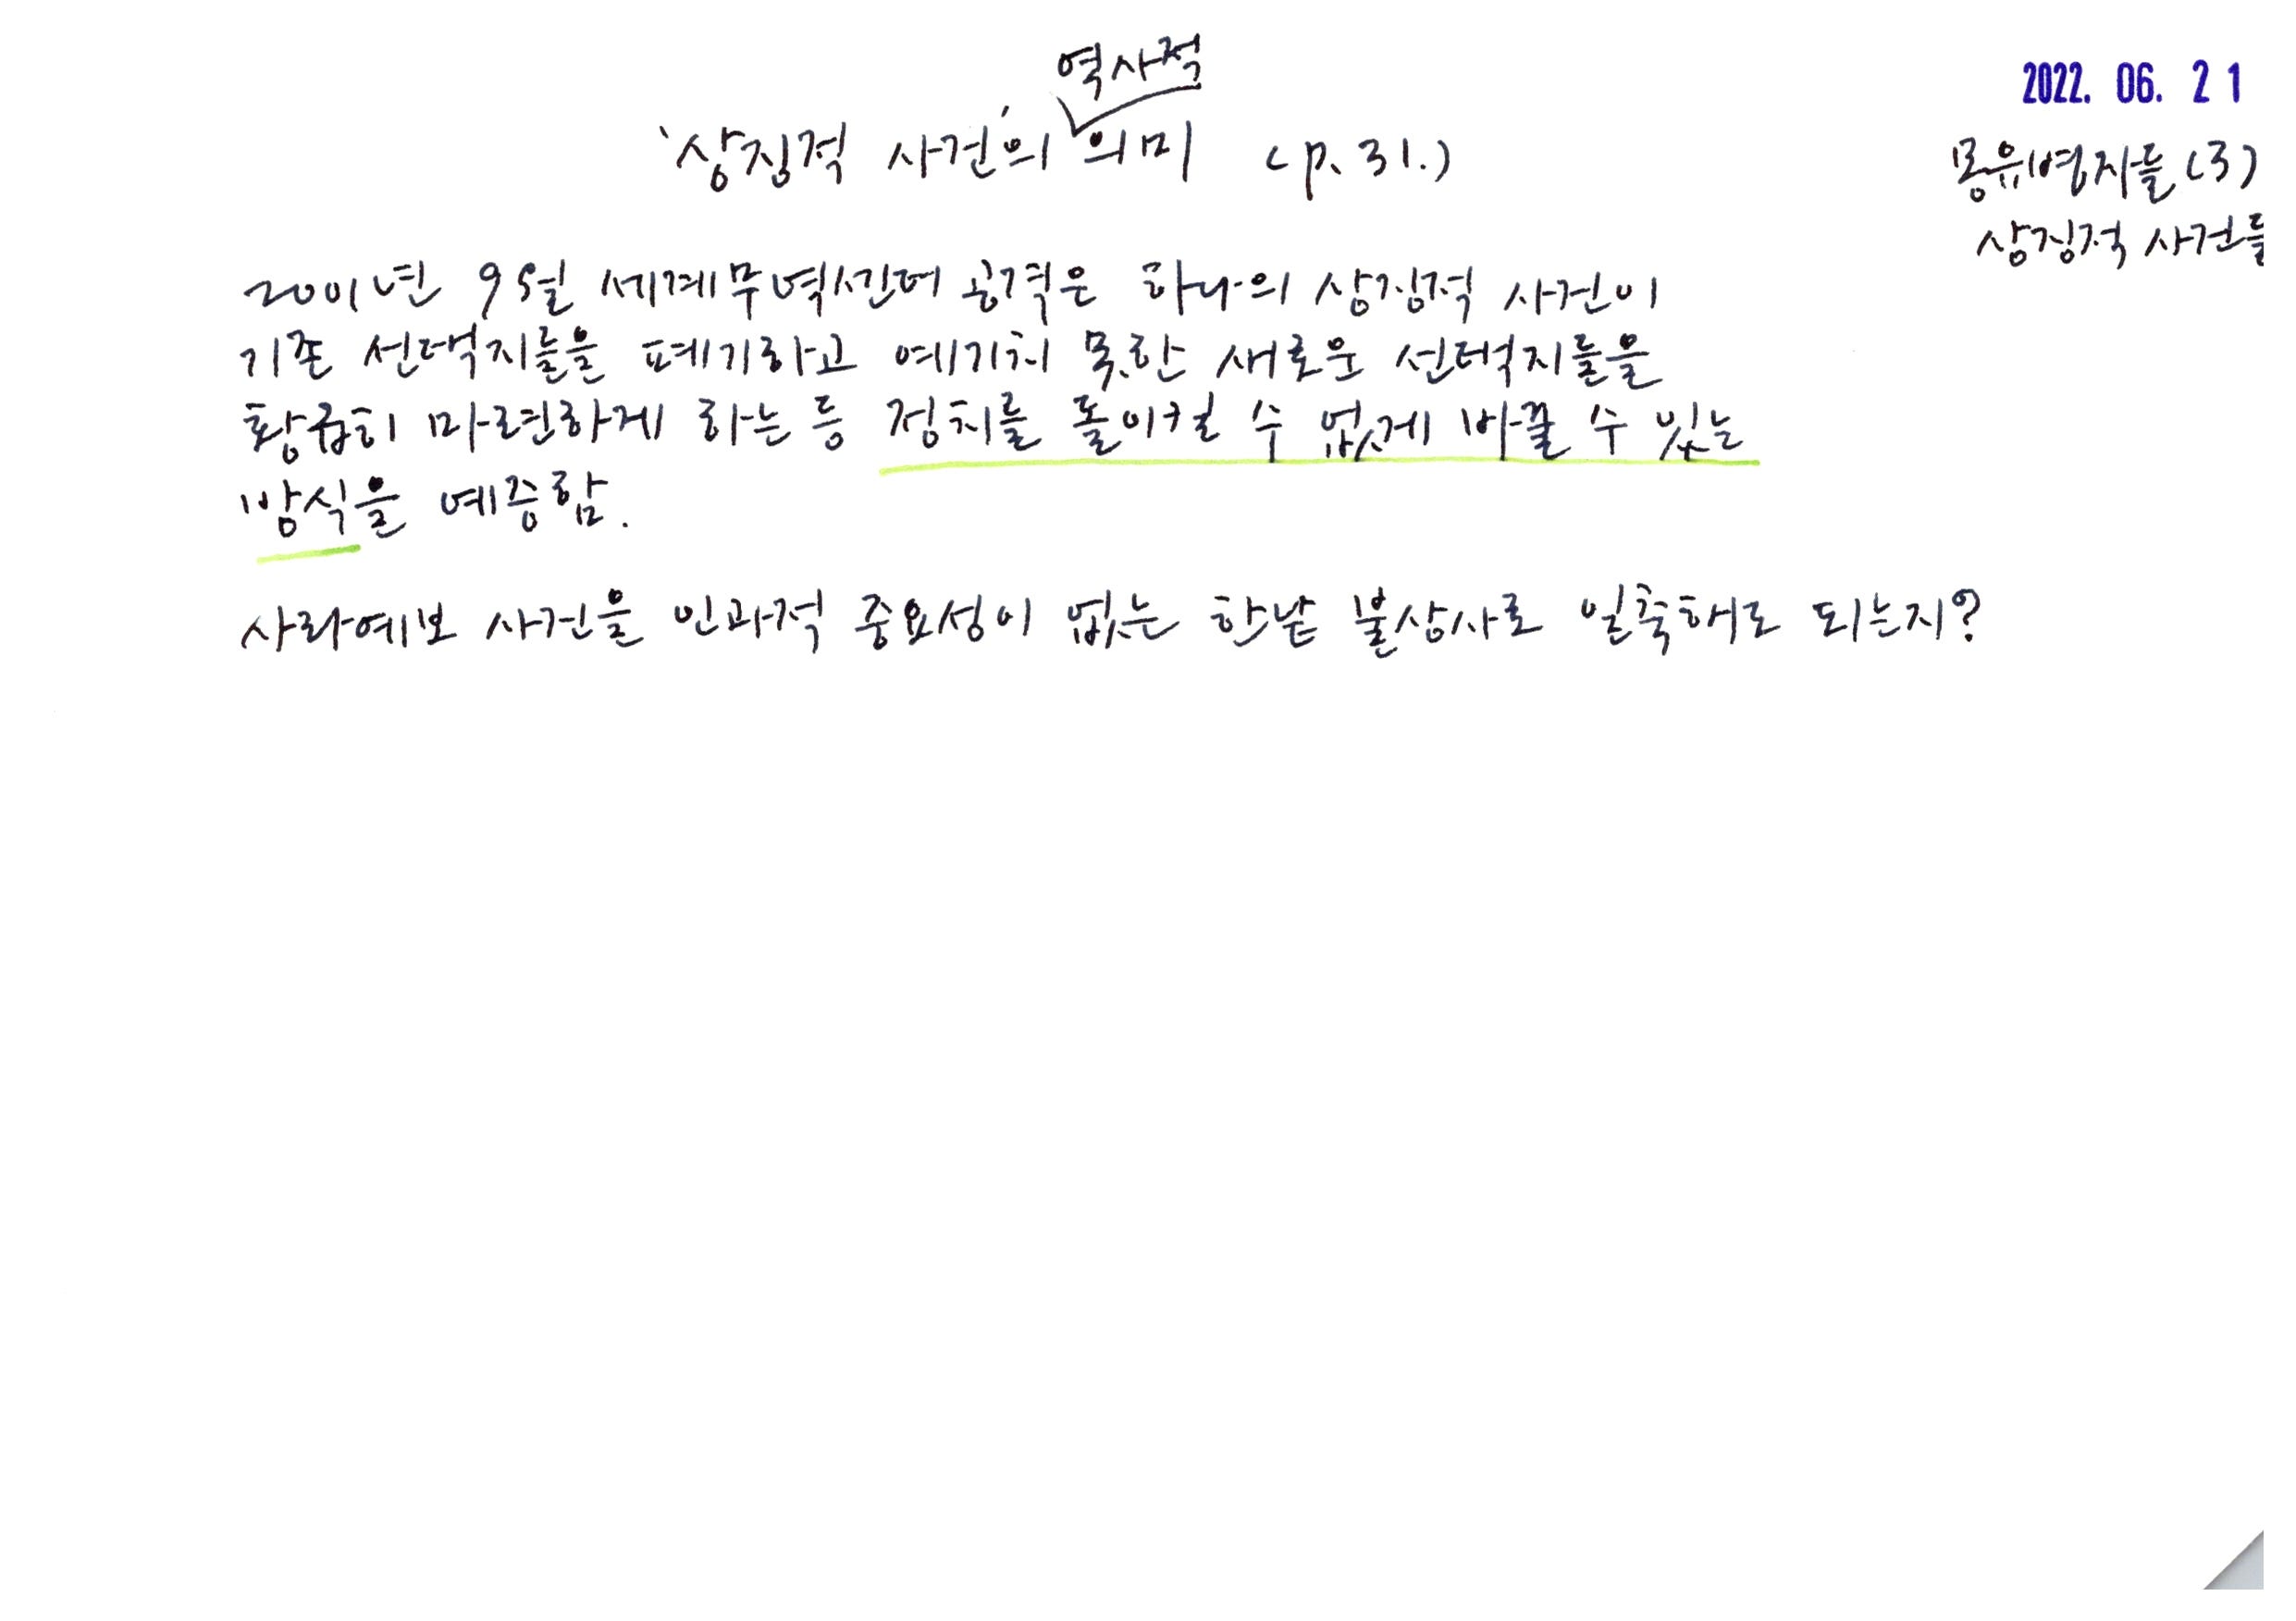 2022. 06. 21
몽유병자들(3)
상징적 사건들
역사적
'상징적 사건'의 의미 (p. 31.)
2001년 9월 세계무역센터 공격은 하나의 상징적 사건이
기존 선택지들을 폐기하고 예기치 못한 새로운 선택지들을
황급히 마련하게 하는 등 정치를 돌이킬 수 없게 바꿀 수 있는
방식을 예증함.
사라예보 사건을 인과적 중요성이 없는 한낱 불상사로 일축해도 되는지?